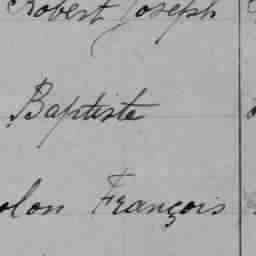 Robert Joseph
Baptiste
olon François